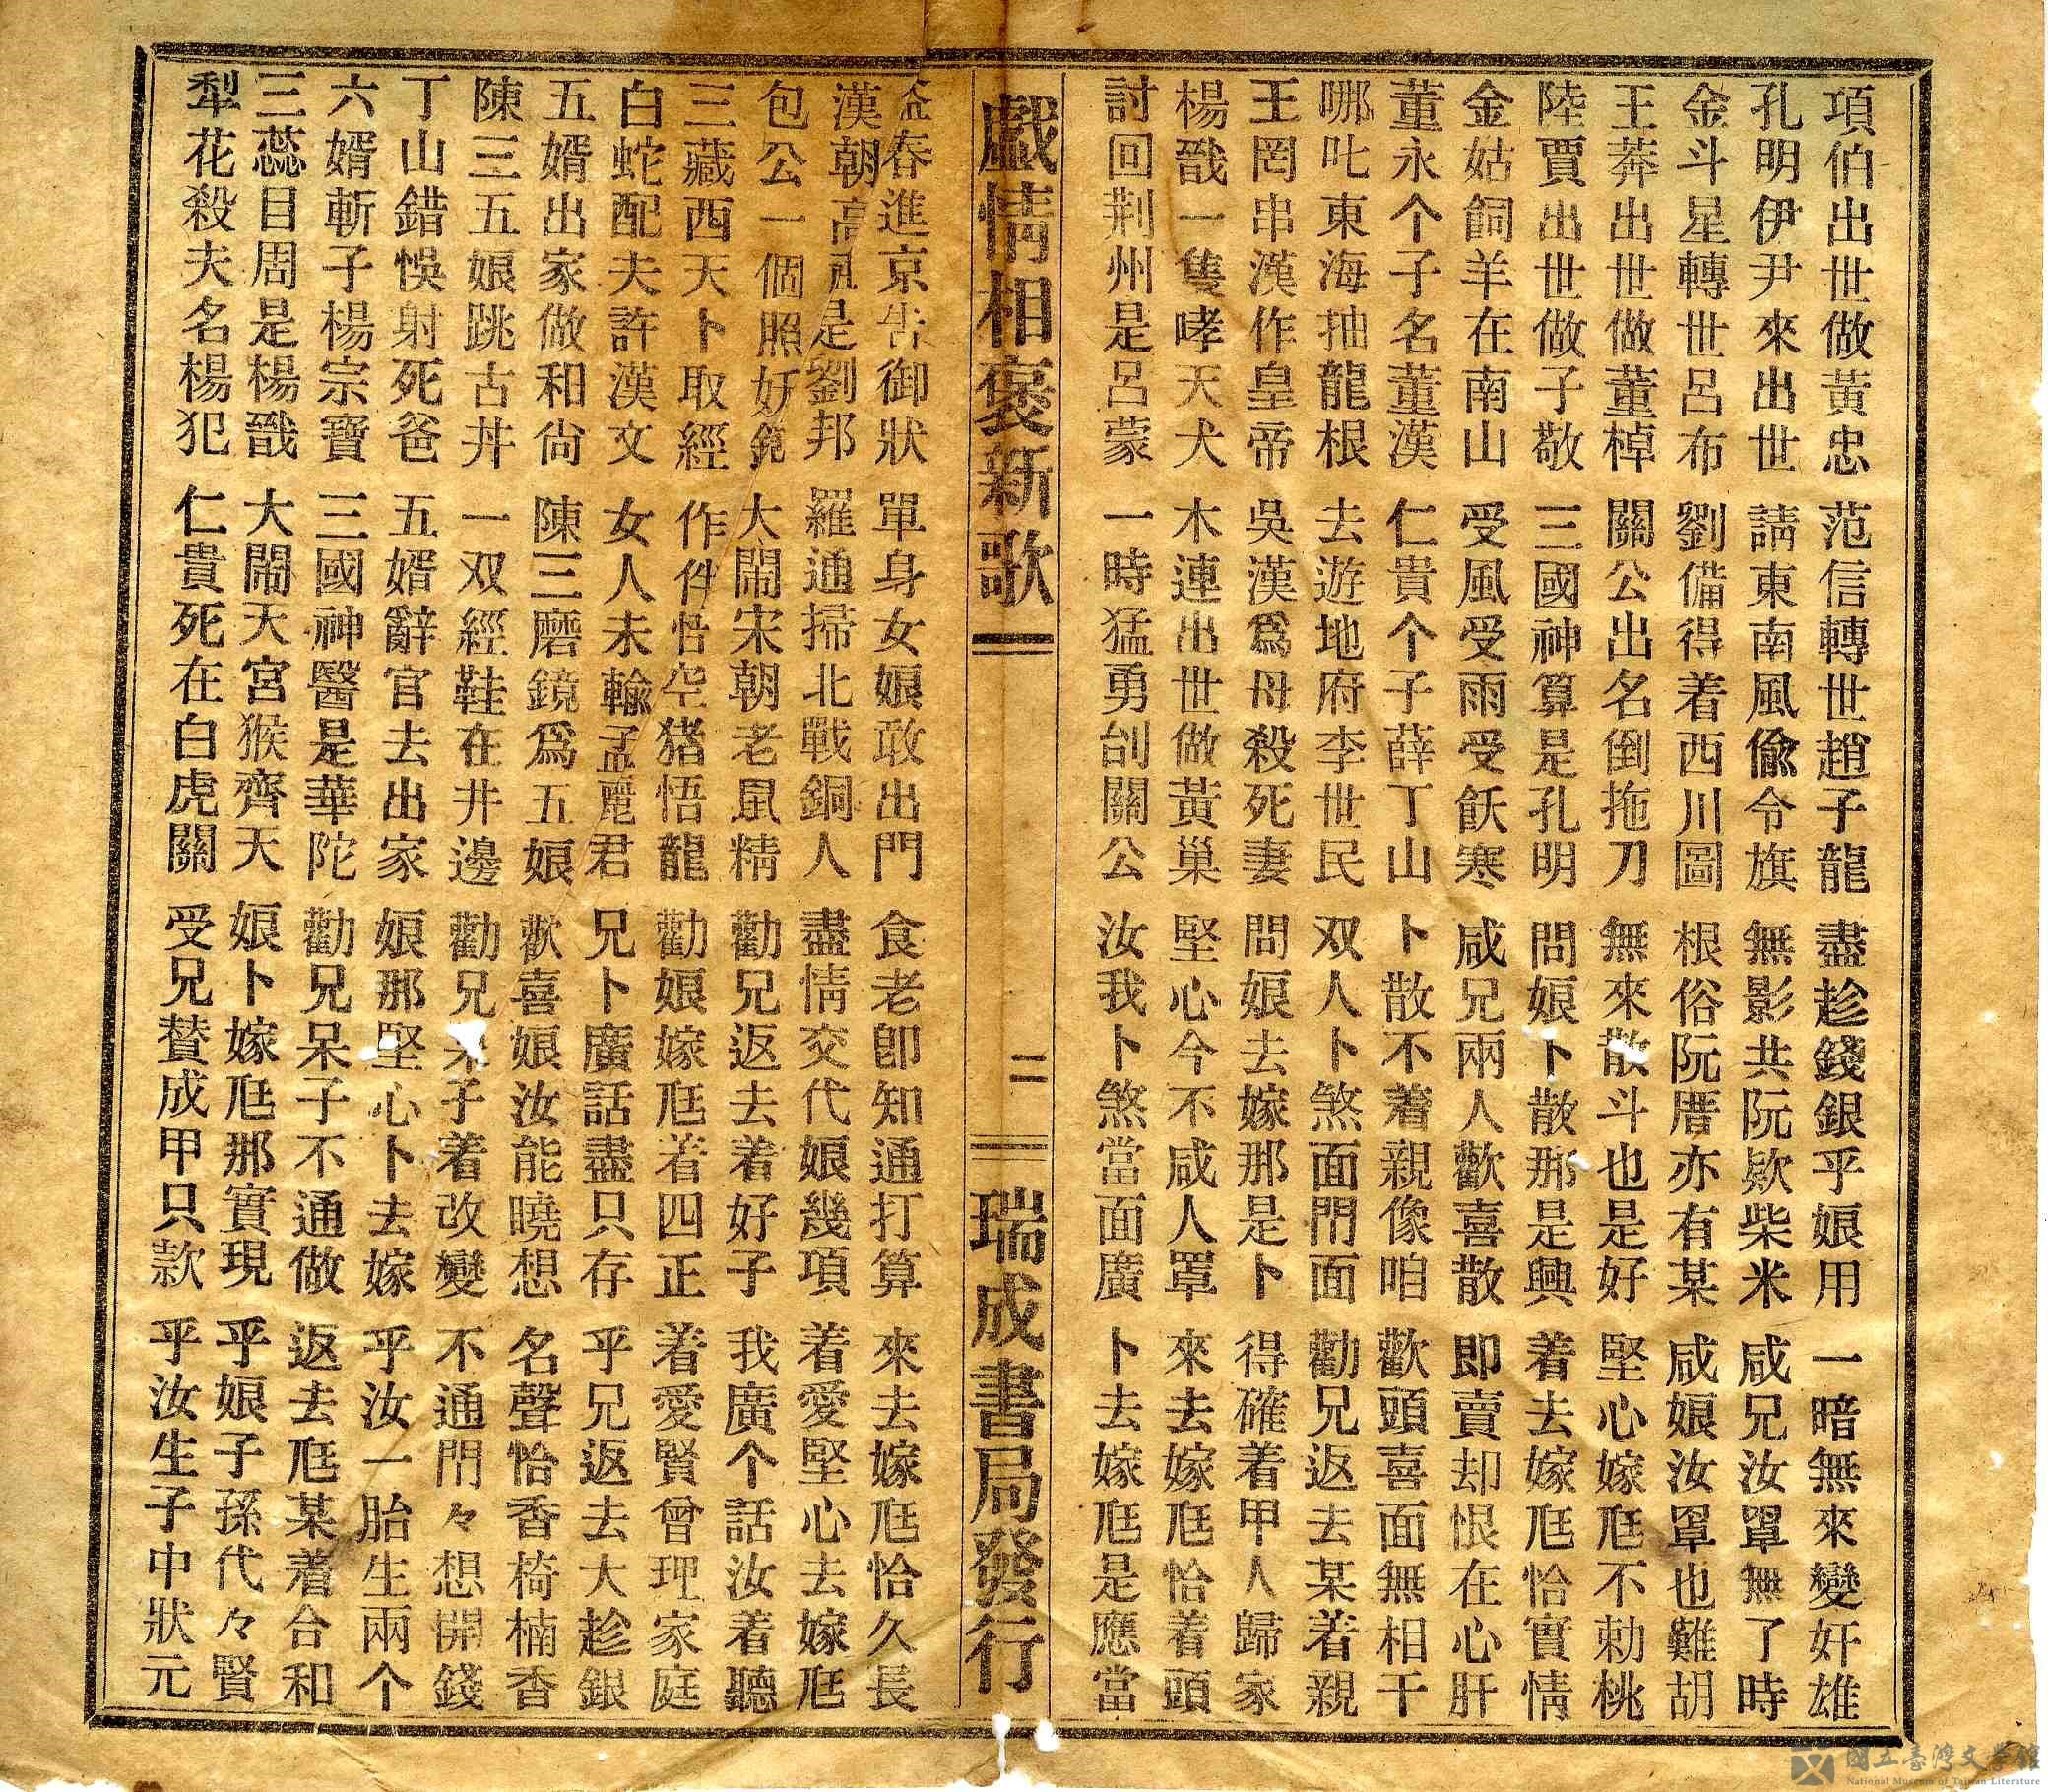 項伯出世做黃忠 范信轉世趙子龍 盡趁錢銀乎娘用 一暗無來變奸雄
孔明伊尹來出世 請東南風偷令旗 無影共阮欵柴米 咸兄汝罩無了時
金斗星轉世呂布 劉備得着西川圖 根俗阮厝亦有某 咸娘汝罩也難胡
王莽出世做董棹 關公出名倒拖刀 無來散斗也是好 堅心嫁尫不勅桃
陸賈出世做子敬 三國神算是孔明 問娘卜散那是興 着去嫁尫恰實情
金姑飼羊在南山 受風受雨受飫寒 咸兄兩人歡喜散 即賣却恨在心肝
董永个子名董漢 仁貴个子薛丁山 卜散不着親像咱 歡頭喜面無相干
哪叱東海抽龍根 去遊地府李世民 双人卜煞面鬥面 勸兄返去某着親
王罔串漢作皇帝 吳漢爲母殺死妻 問娘去嫁那是卜 得確着甲人歸家
楊戩一隻哮天犬 木連出世做黃巢 堅心今不咸人罩 來去嫁尫恰着頭
討回荆州是呂蒙 一時猛勇刣關公 汝我卜煞當面廣 卜去嫁尫是應當
戲情相褒新歌 二 瑞成書局發行
春進京告御狀 單身女娘敢出門 食老卽知通打算 來去嫁尫恰久長
漢朝高祖是劉邦 羅通掃北戰銅人 盡情交代娘幾項 着愛堅心去嫁尫
包公一個照妖鏡 大鬧宋朝老鼠精 勸兄返去着好子 我廣个話汝着聽
三藏西天卜取經 作件悟空猪悟龍 勸娘嫁尫着四正 着愛賢曾理家庭
白蛇配夫許漢文 女人未輸孟麗君 兄卜廣話盡只存 乎兄返去大趁銀
五婿出家做和尙 陳三磨鏡爲五娘 歡喜娘汝能曉想 名聲恰香椅楠香
陳三五娘跳古井 一双經鞋在井邊 勸兄呆子着改變 不通鬥々想開錢
丁山錯悞射死爸 五婿辭官去出家 娘那堅心卜去嫁 乎汝一胎生兩个
六婿斬子楊宗寶 三國神醫是華陀 勸兄呆子不通做 返去尫某着合和
三蕊目周是楊戩 大鬧天宮猴齊天 娘卜嫁尫那實現 乎娘子孫代々賢
犁花殺夫名楊犯 仁貴死在白虎關 受兄贊成甲只款 乎汝生子中狀元
國立臺灣文學館
National Museum of Taiwan Literature